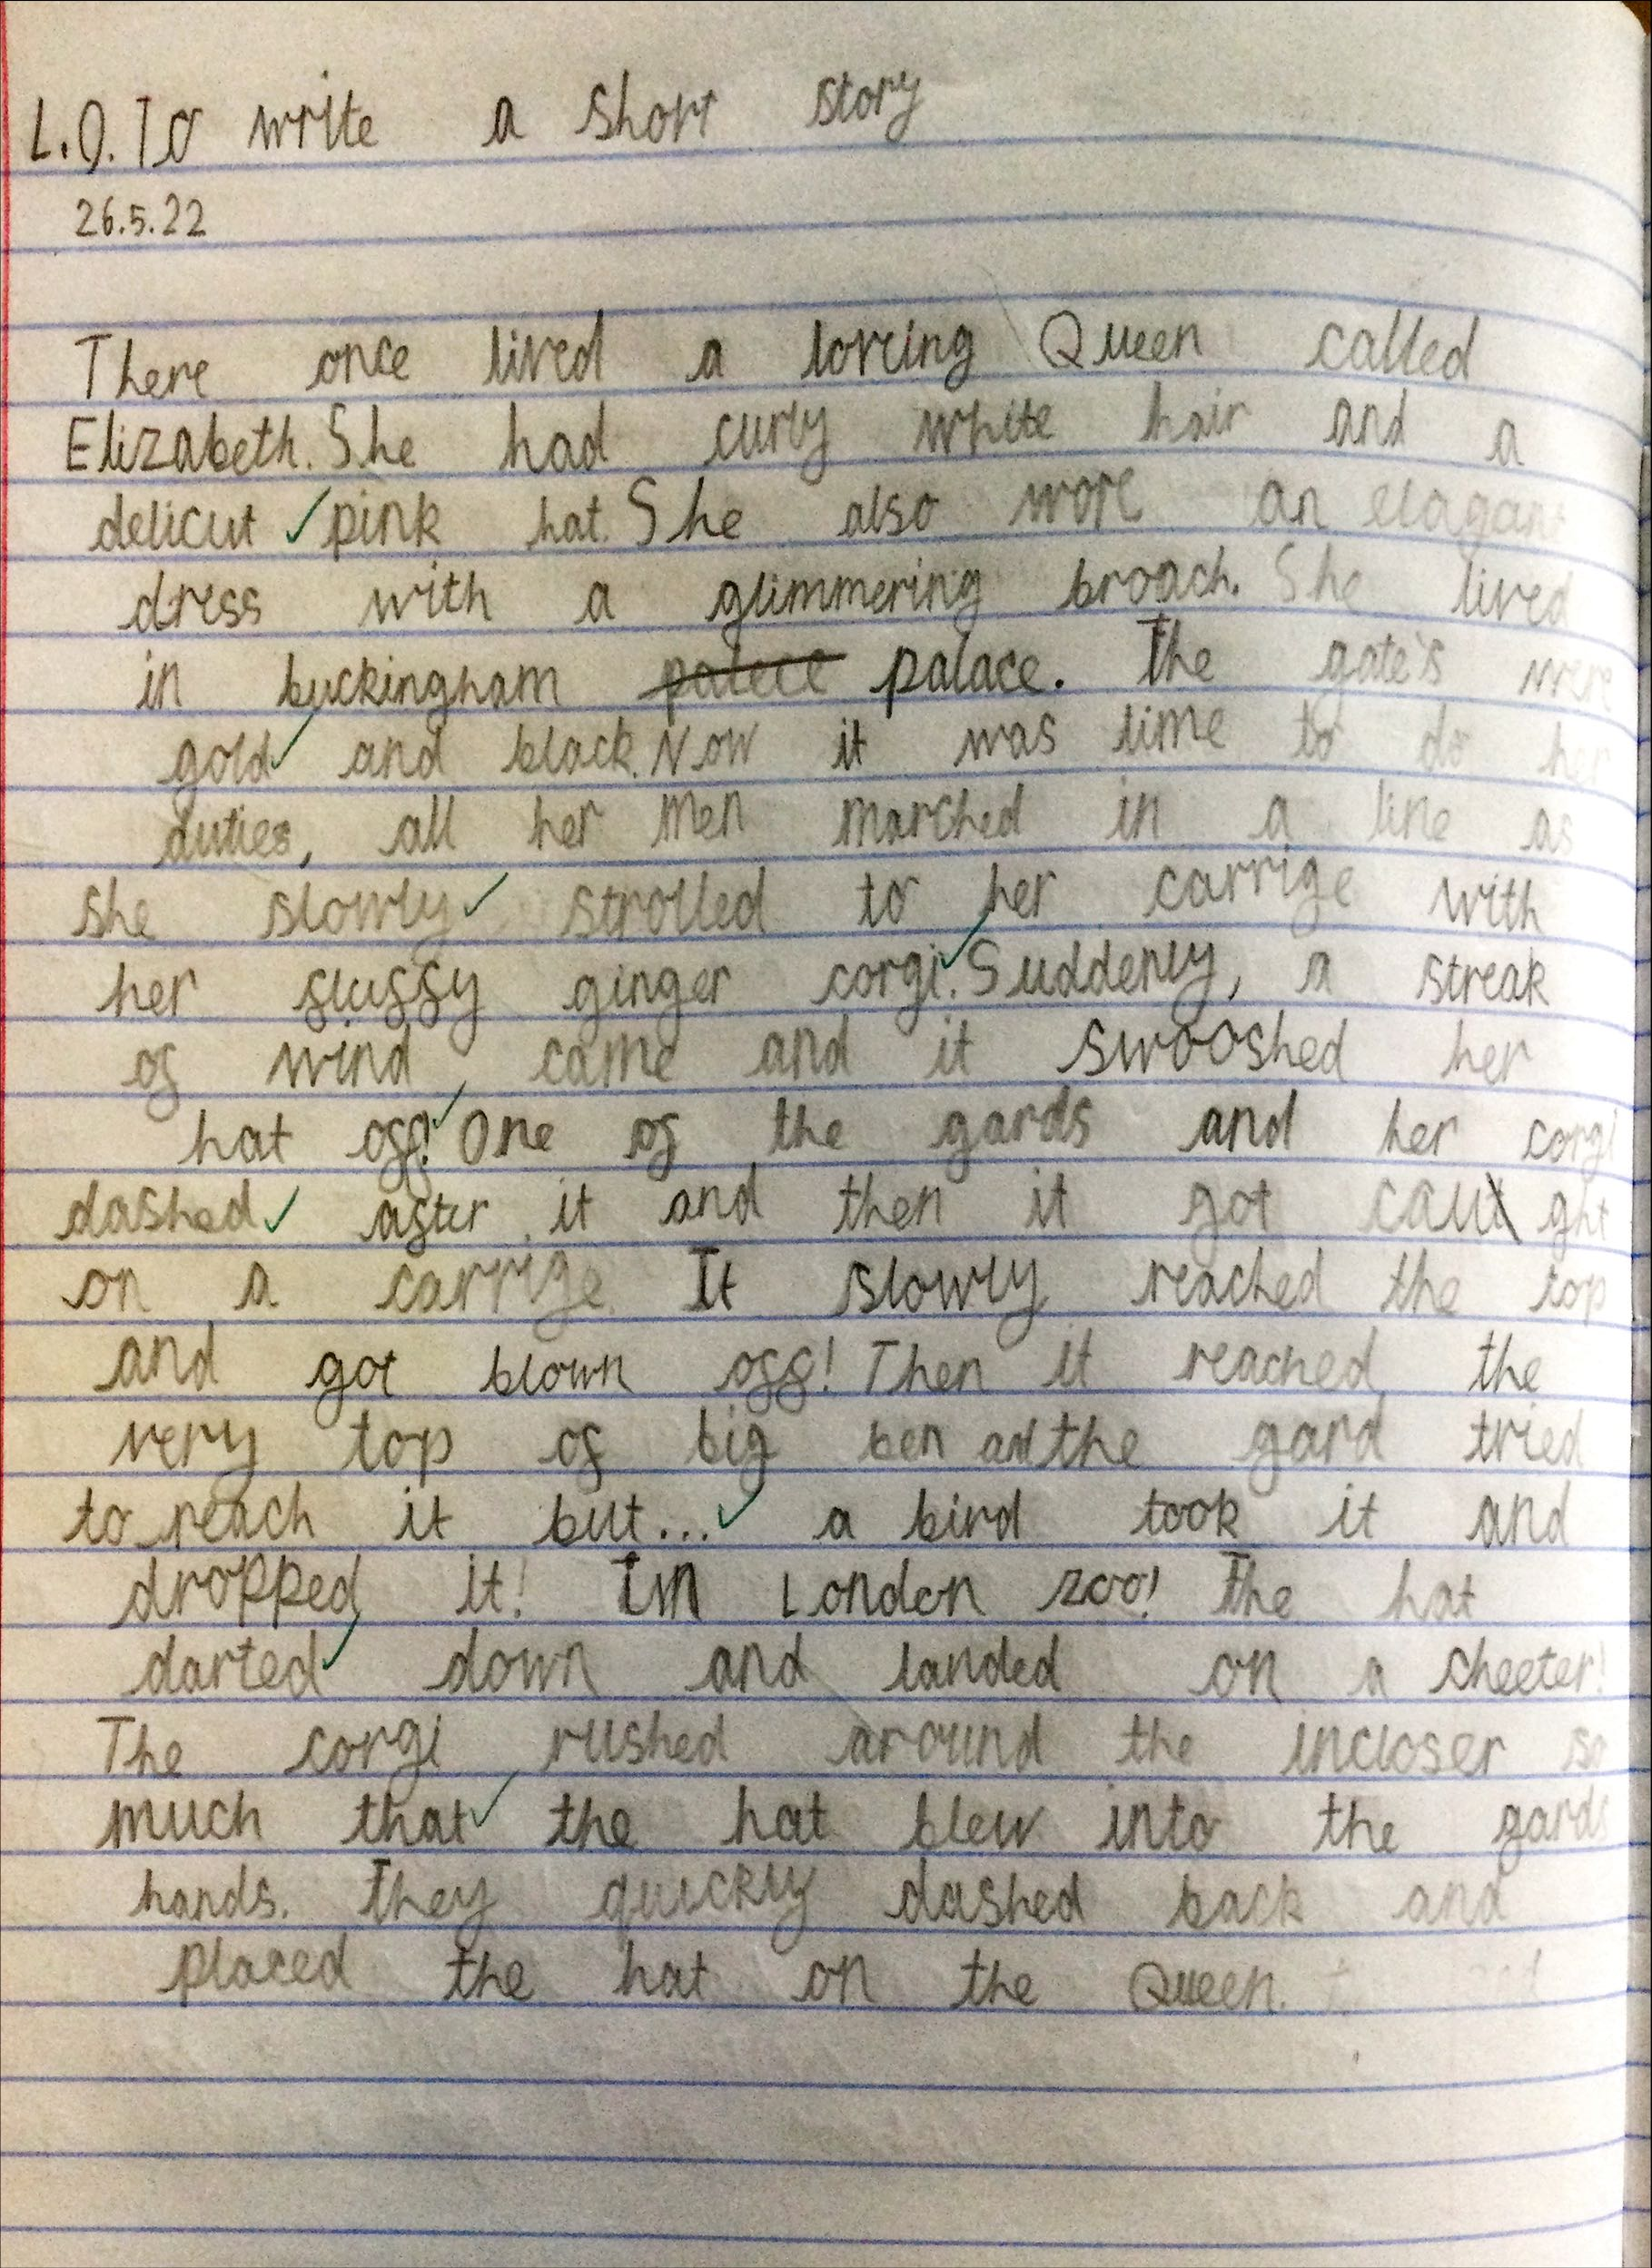 L.O. To write a short story
26.5.22
There once lived a loveing Queen called
Elizabeth. She had curly white hair and a
delicut pink hat. She also wore an elagant
dress with a glimmering broach. She lived
in buckingham palece palace. The gate's were
gold and black. Now it was time to do her
duties, all her men marched in a line as
she slowly strolled to her carrige with
her fluffy ginger corgi. Suddenly, a streak
of wind, came and it swooshed her
hat off! One of the gards and her corgi
dashed after it and then it got caught
on a carrige. It slowly reached the top
and got blown off! Then it reached the
very top of big ben and the gard tried
to reach it but... a bird took it and
dropped it! In London zoo! The hat
darted down and landed on a cheeter!
The corgi rushed around the incloser so
much that the hat blew into the gards
hands. They quickly dashed back and
placed the hat on the Queen.